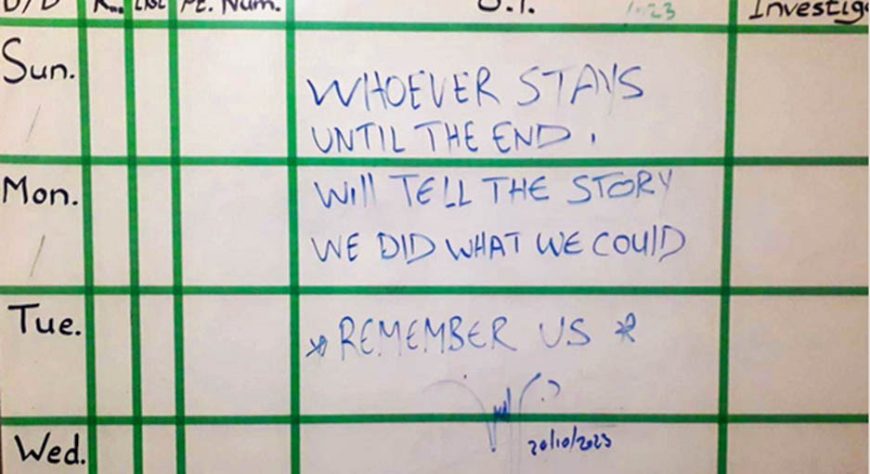 Pt. Num.
Investig
Sun.
WHOEVER STAYS
UNTIL THE END.
Mon.
Will TELL THE STORY
WE DID WHAT WE COULD
Tue.
*REMEMBER US *
20/10/2023
Wed.